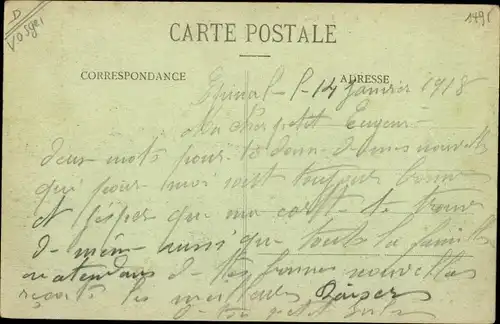 D
Vosges
1491
CARTE POSTALE
CORRESPONDANCE
ADRESSE
Epinal 14 Janvier 1918
Mon cher petit Eugene
deux mots pour te donn de mes nouvelle
qui pour moi sont toujours bonne
et j'espere que ma carte te trouve
de meme aussi que toute la famille
en atendans de tes bonnes nouvelles
reçoit les meilleurs Baisers
petit